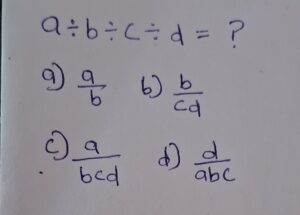 a÷b÷c÷d = ?
a) a/b b) b/cd
c) a/bcd d) d/abc